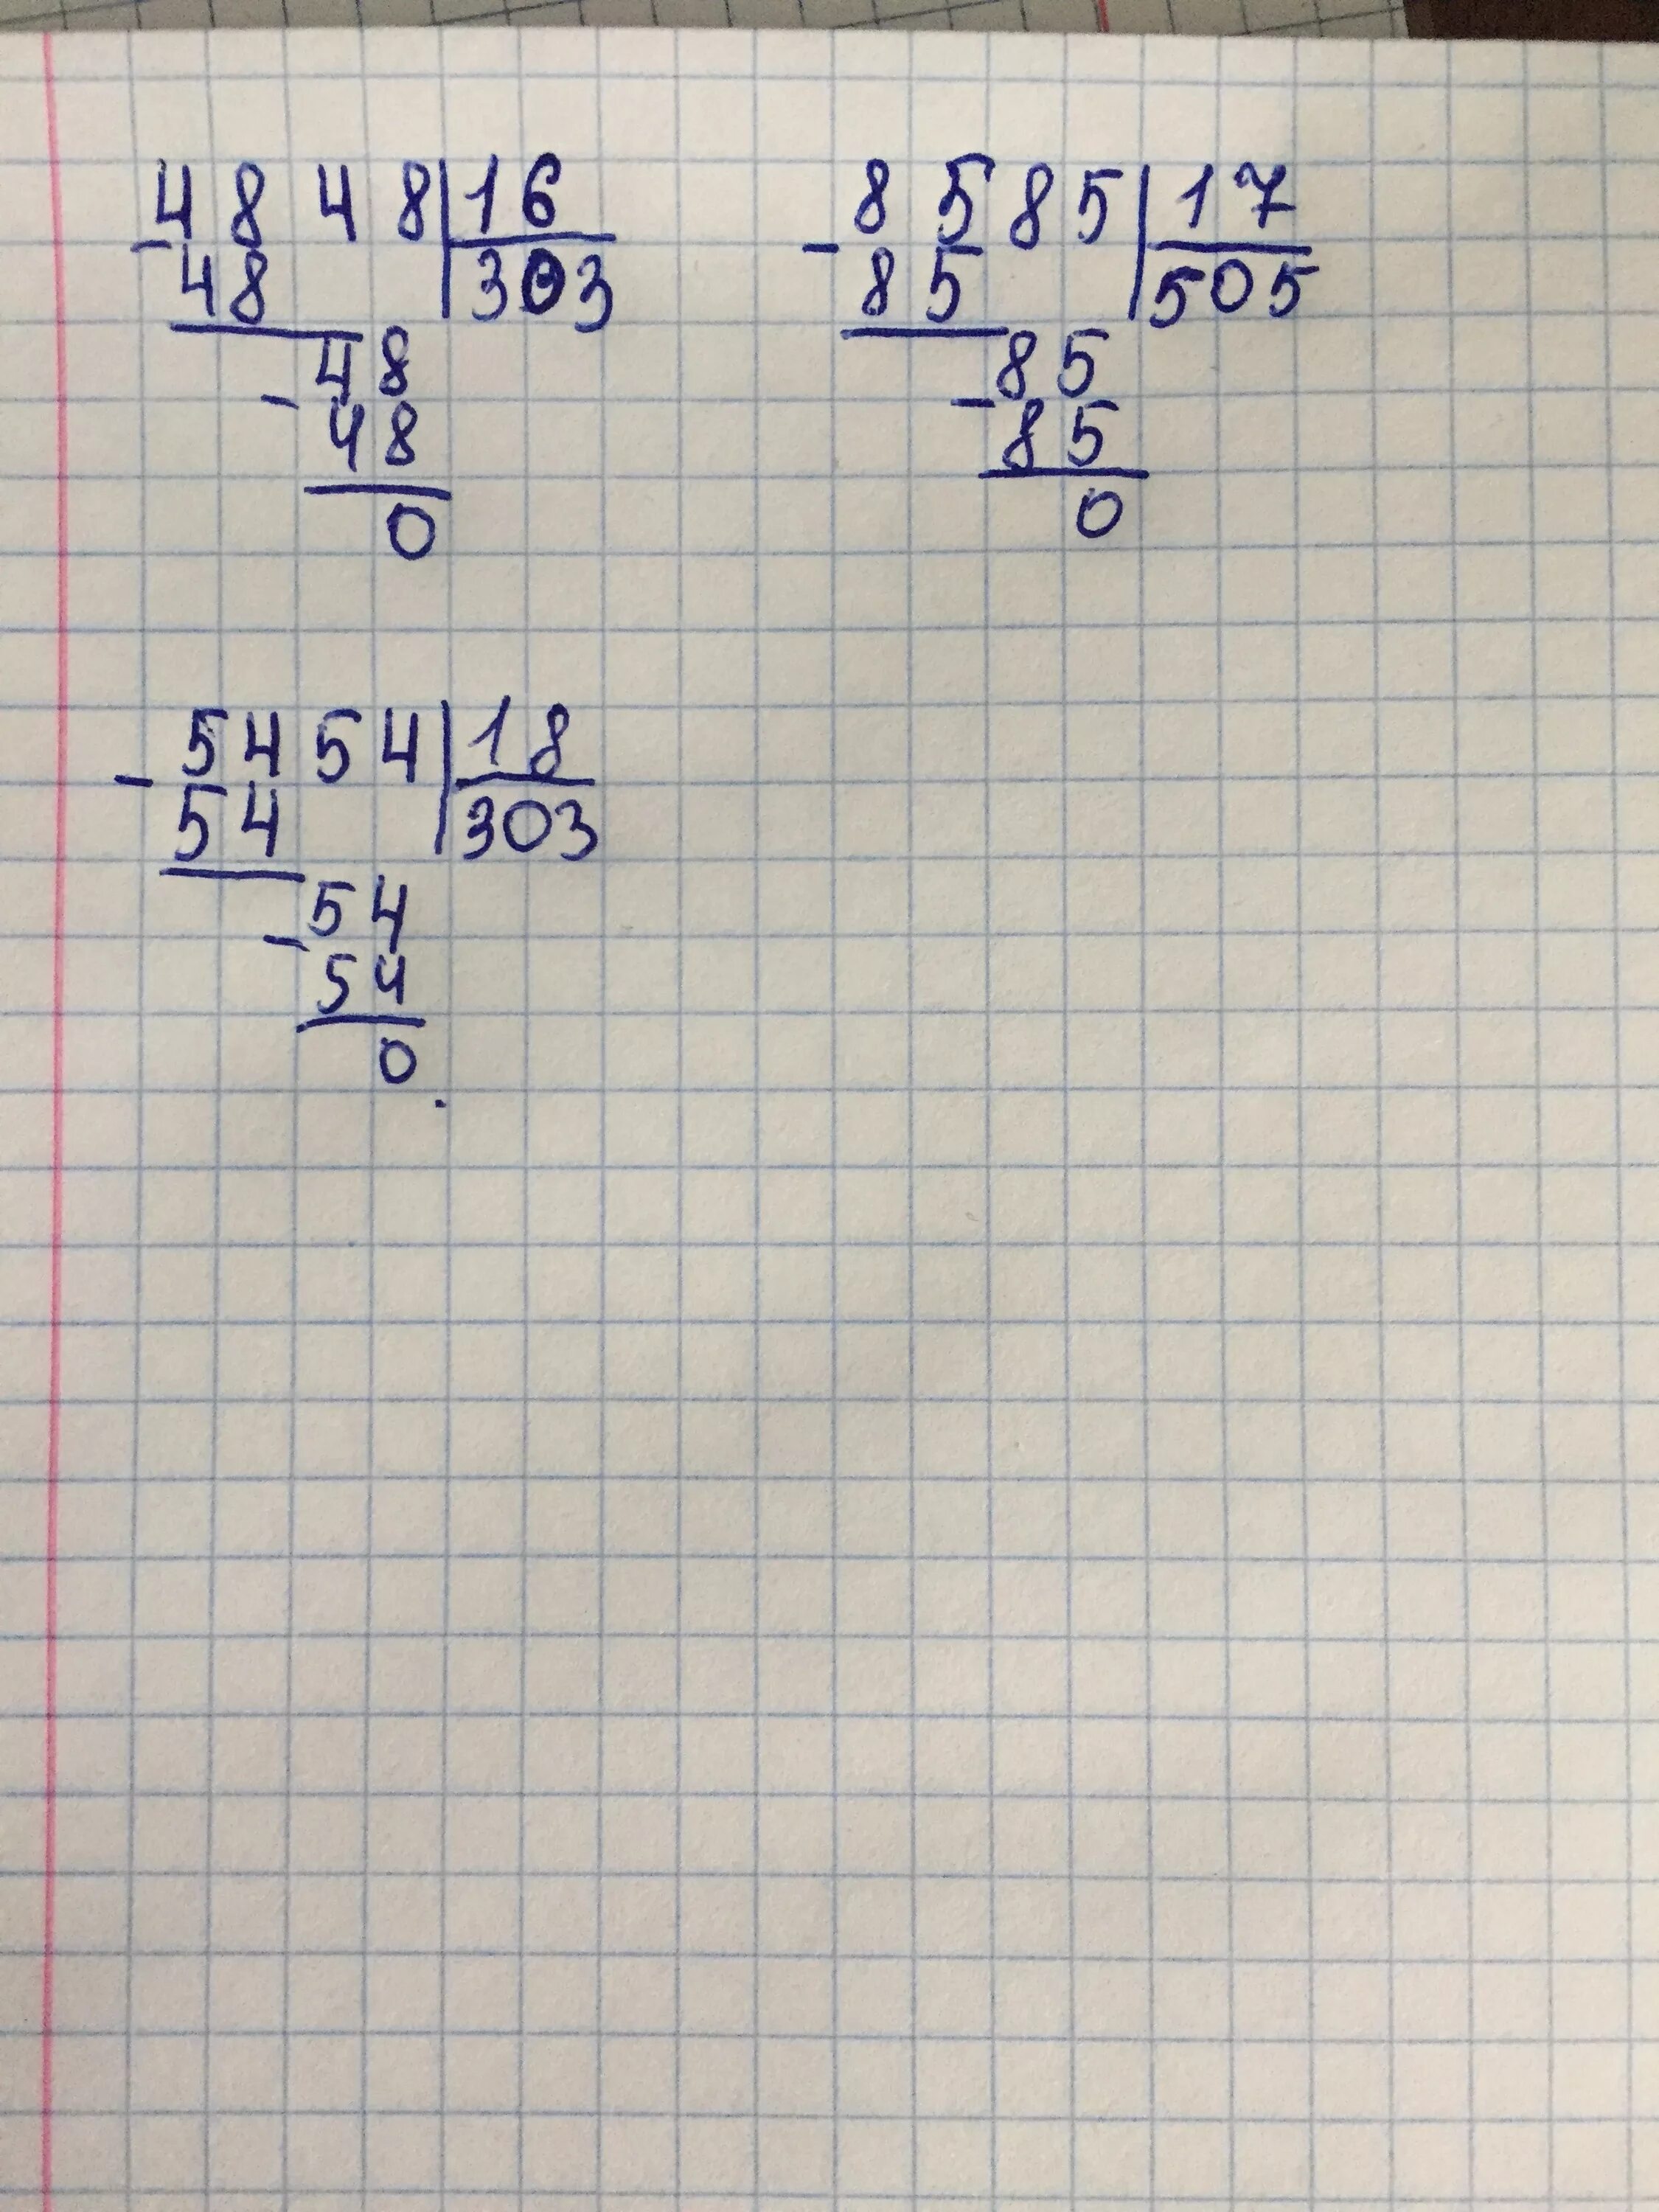 4848 16
48 303
48
48
0
8585 17
85 505
85
85
0
5454 18
54 303
54
54
0